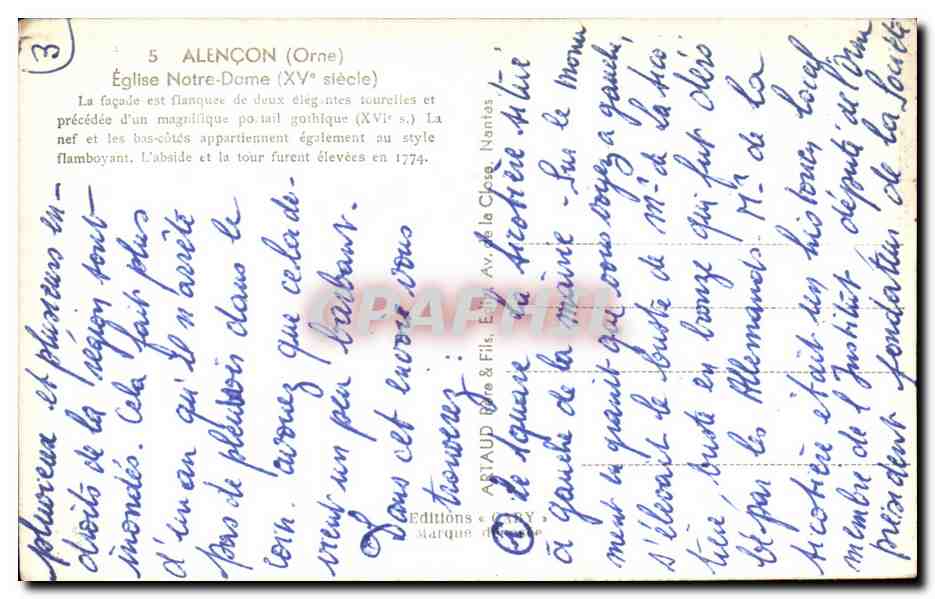 3
5 ALENÇON (Orne)
Église Notre-Dame (XVe siècle)
La façade est flanquée de deux élégantes tourelles et
précédée d'un magnifique portail gothique (XVIe s.) La
nef et les bas-côtés appartiennent également au style
flamboyant. L'abside et la tour furent élevées en 1774.
pluvieux et plusieurs en-
droits de la région sont
inondés. Cela fait plus
d'un an qu'il n'arrête
pas de pleuvoir dans le
coin. avouez que cela de-
vient un peu barbant.
Dans cet envoi vous
trouverez :
① Le square la Sicotière situé
à gauche de la mairie - Sur le monu
ment en granit que vous voyez à gauche,
s'élevait le buste de Mr de la Sico
tière, buste en bronze qui fut déro
bé par les Allemands - Mr de la
sicotière était un historien local
membre de l'Institut député de l'Orne
président fondateur de la Société
ARTAUD Père & Fils, Edit., Av. de la Close, Nantes
Editions « GABY »
Marque déposée
CPAPHIL